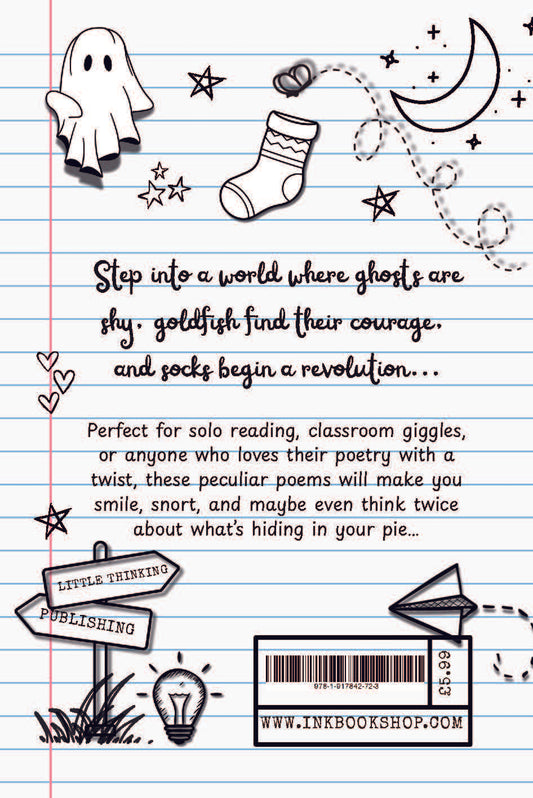 Step into a world where ghosts are
shy, goldfish find their courage,
and socks begin a revolution...
Perfect for solo reading, classroom giggles,
or anyone who loves their poetry with a
twist, these peculiar poems will make you
smile, snort, and maybe even think twice
about what's hiding in your pie...
LITTLE THINKING
PUBLISHING
978-1-917842-72-3
£5.99
WWW.INKBOOKSHOP.COM